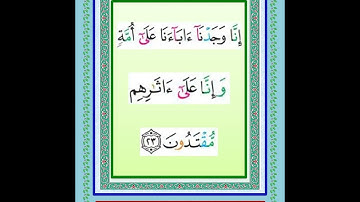 إِنَّا وَجَدْنَآ ءَابَآءَنَا عَلَىٰٓ أُمَّةٍ
وَإِنَّا عَلَىٰٓ ءَاثَٰرِهِم
مُّقْتَدُونَ ٢٣